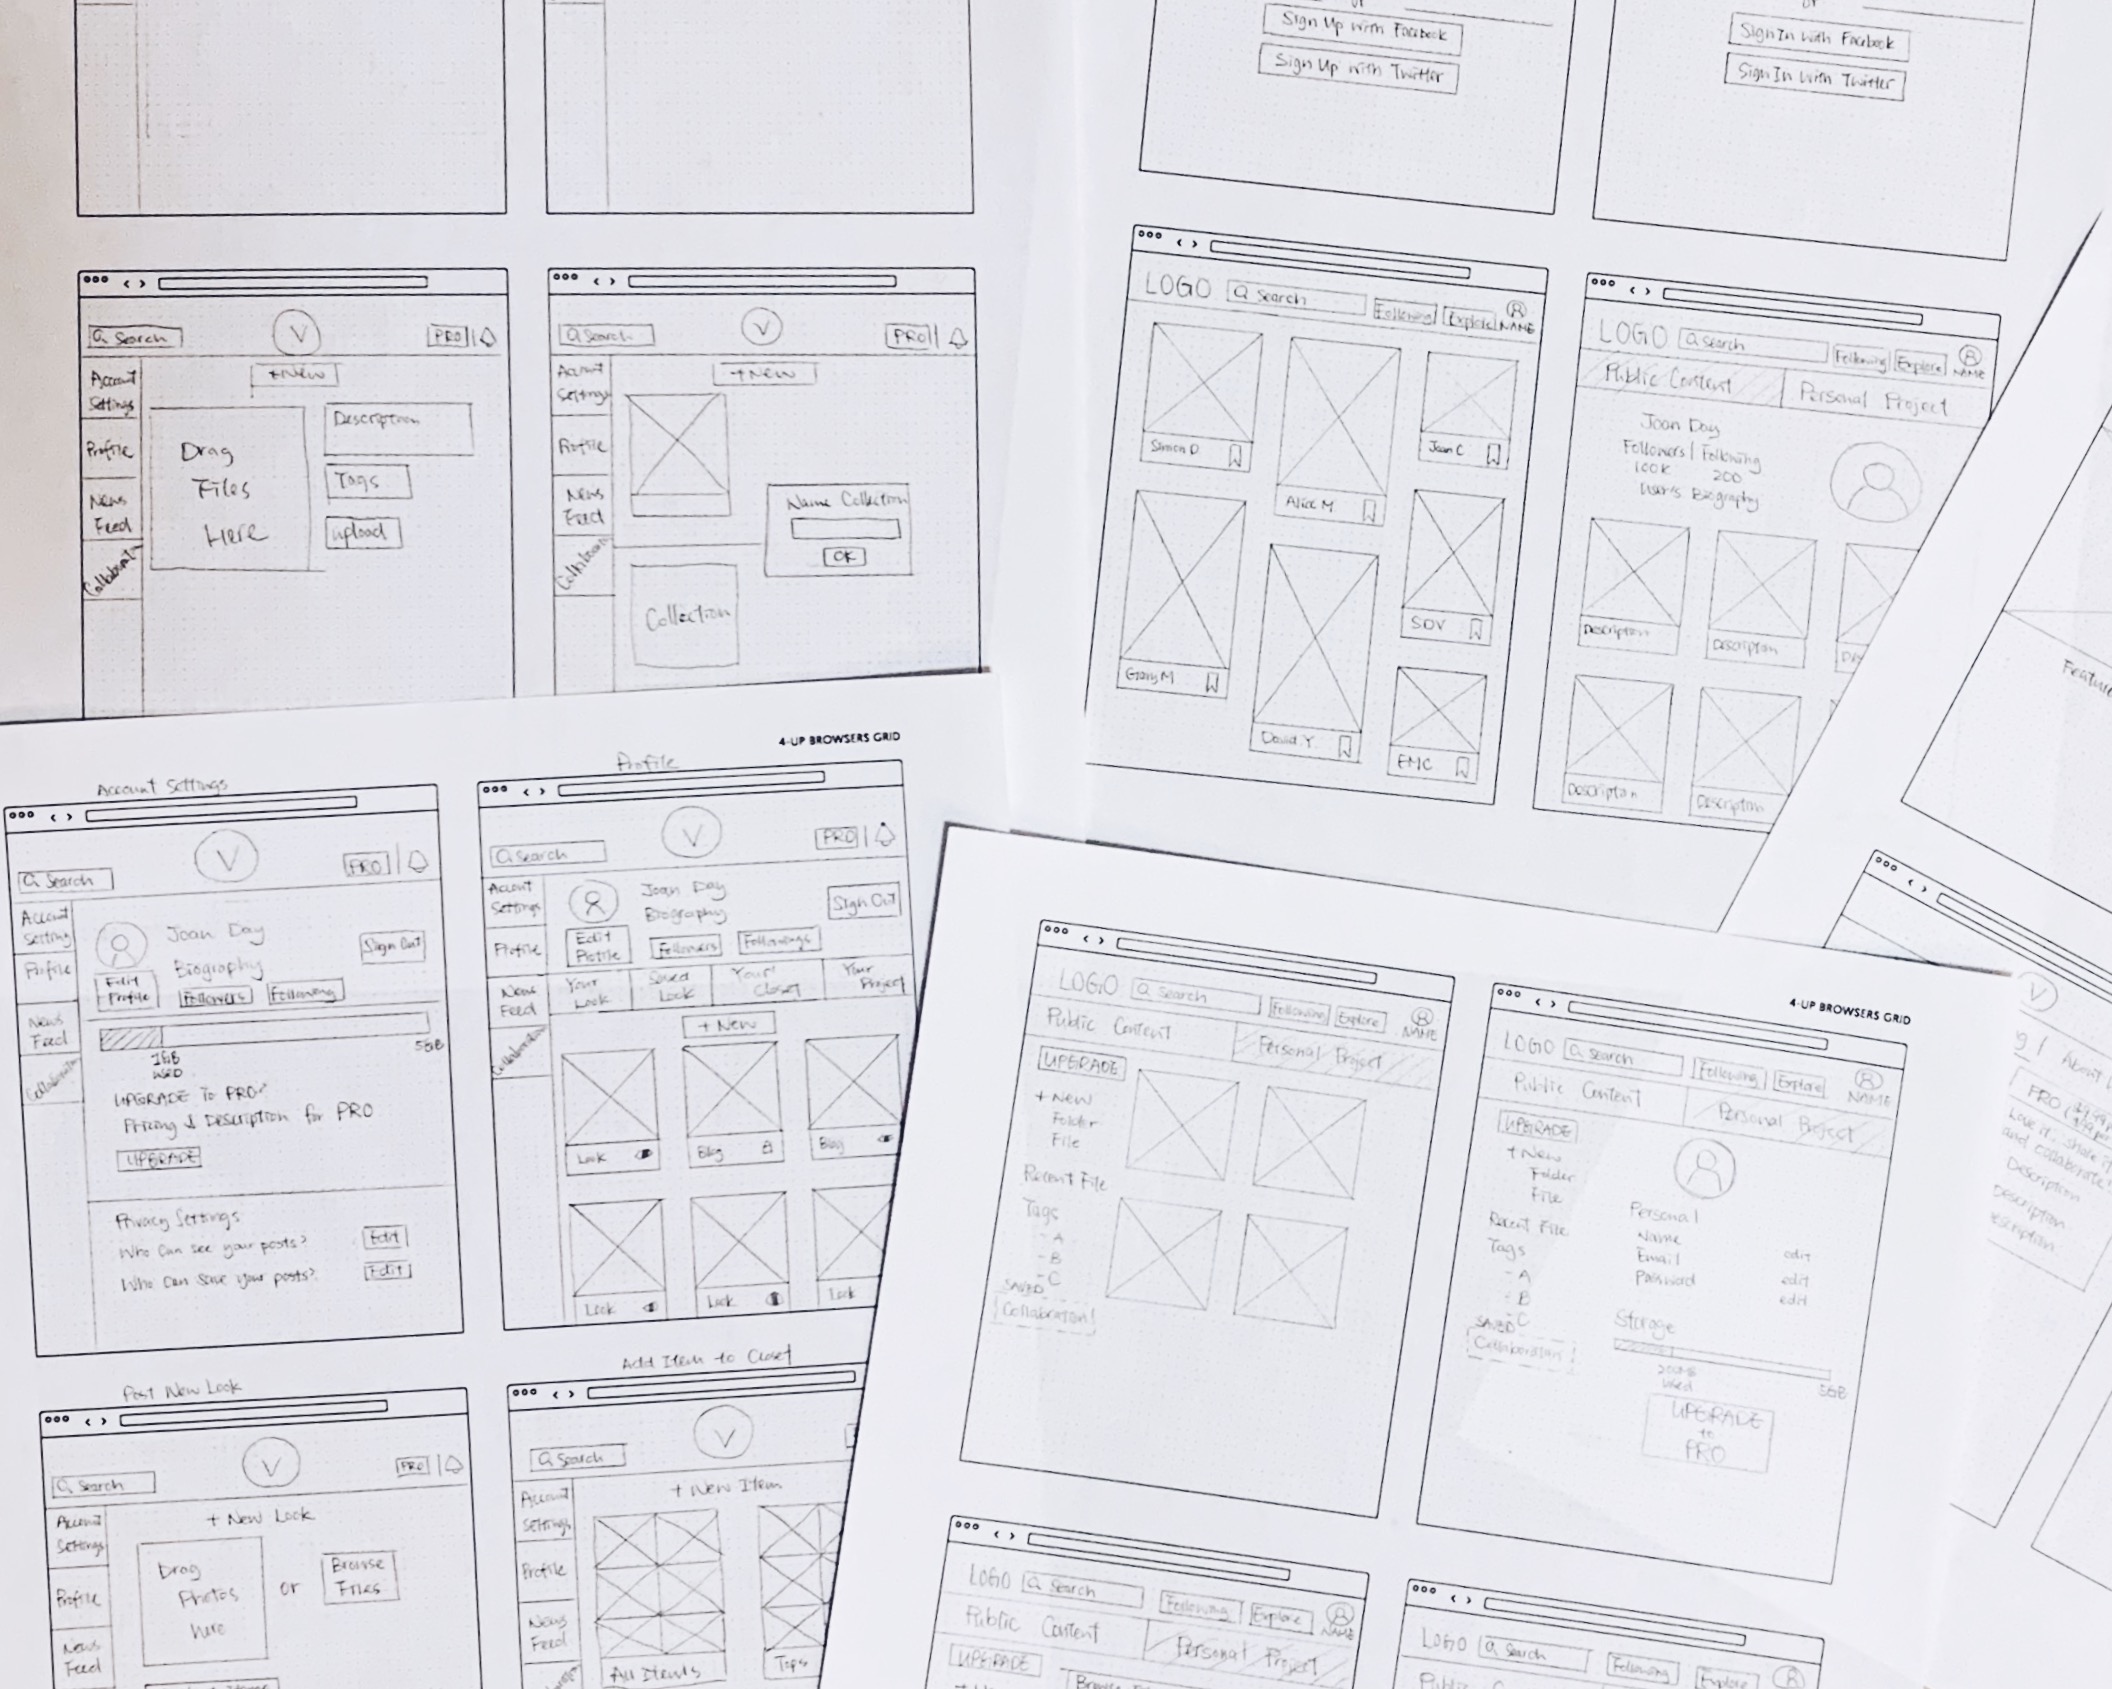 Sign Up with Facebook
Sign Up with Twitter
Sign In with Facebook
Sign In with Twitter
Search
V
PRO
+New
Account
Settings
Profile
News
Feed
Drag
Files
Here
Description
Tags
upload
Search
V
PRO
+New
Account
Settings
Profile
News
Feed
Name Collection
OK
Collection
LOGO
Search
Following
Explore
NAME
Simon D.
Alice M
Joan C
Gary M
David. Y.
SDV
EMC
LOGO
Search
Following
Explore
NAME
Public Content
Personal Project
Joan Day
Followers | Following
100K 200
User's Biography
Description
Description
Description
Description
4-UP BROWSERS GRID
Account Settings
Search
V
PRO
Account
Setting
Profile
News
Feed
Joan Day
Biography
Sign Out
Edit
Profile
Followers
Following
1GB
USED
5GB
UPGRADE To PRO
Pricing & Description for PRO
UPGRADE
Privacy Settings
Who can see your posts?
Edit
Who can save your posts?
Edit
Profile
Search
V
PRO
Account
Settings
Profile
News
Feed
Joan Day
Biography
Sign Out
Edit
Profile
Followers
Followings
Your
Look
Saved
Look
Your
Closet
Your
Project
+ New
Look
Blog
Blog
Look
Look
Look
Post New Look
Search
V
PRO
Account
Settings
Profile
News
Feed
+ New Look
Drag
Photos
here
or
Browse
Files
Add Item to Closet
Search
V
Account
Settings
Profile
News
Feed
+ New Item
All Items
Tops
4-UP BROWSERS GRID
LOGO
Search
Following
Explore
NAME
Public Content
Personal Project
UPGRADE
+ New
Folder
File
Recent File
Tags
- A
- B
- C
SAVED
Collaboration
LOGO
Search
Following
Explore
NAME
Public Content
Personal Project
UPGRADE
+ New
Folder
File
Recent File
Tags
- A
- B
- C
SAVED
Collaboration
Personal
Name
Email
edit
Password
edit
edit
Storage
200MB
used
5GB
UPGRADE
to
PRO
LOGO
Search
Following
Explore
NAME
Public Content
Personal Project
UPGRADE
LOGO
Search
Following
Explore
V
About
PRO
Love it, share it
and collaborate!
Description
Description